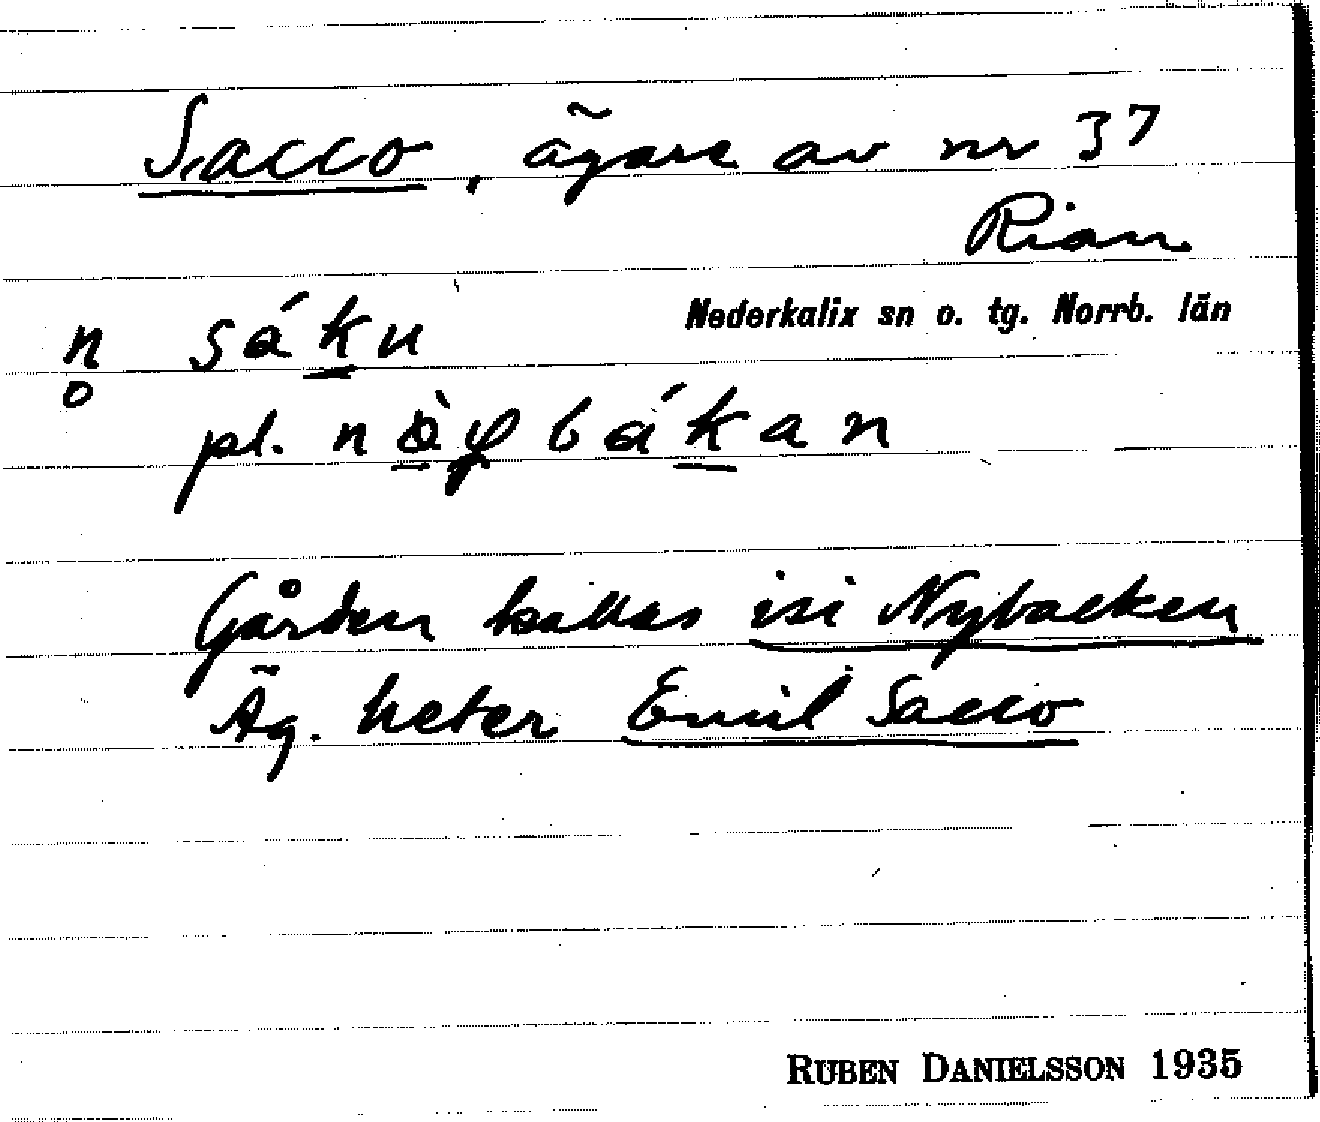 Sacco, ägare av nr 37
Rian
Nederkalix sn o. tg. Norrb. län
n̥ sáku
pl. bákan
Gården kallas isi Nybacken
Äg. heter Emil Sacco
RUBEN DANIELSSON 1935